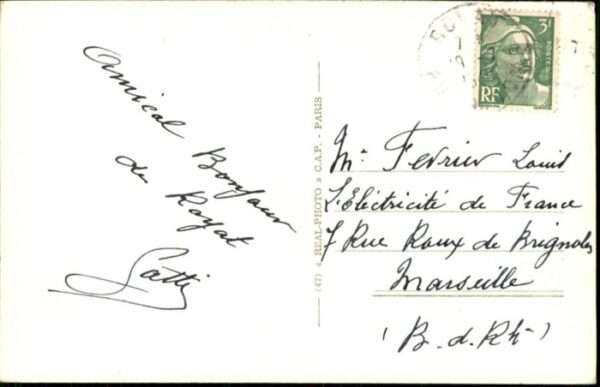 Amical Bonjour
de Royat
Gatti
(47) REAL-PHOTO C.A.P. - PARIS
3F
RF
Mr Fevrier Louis
L'Électricité de France
7 Rue Roux de Brignoles
Marseille
(B. d. Rh.)